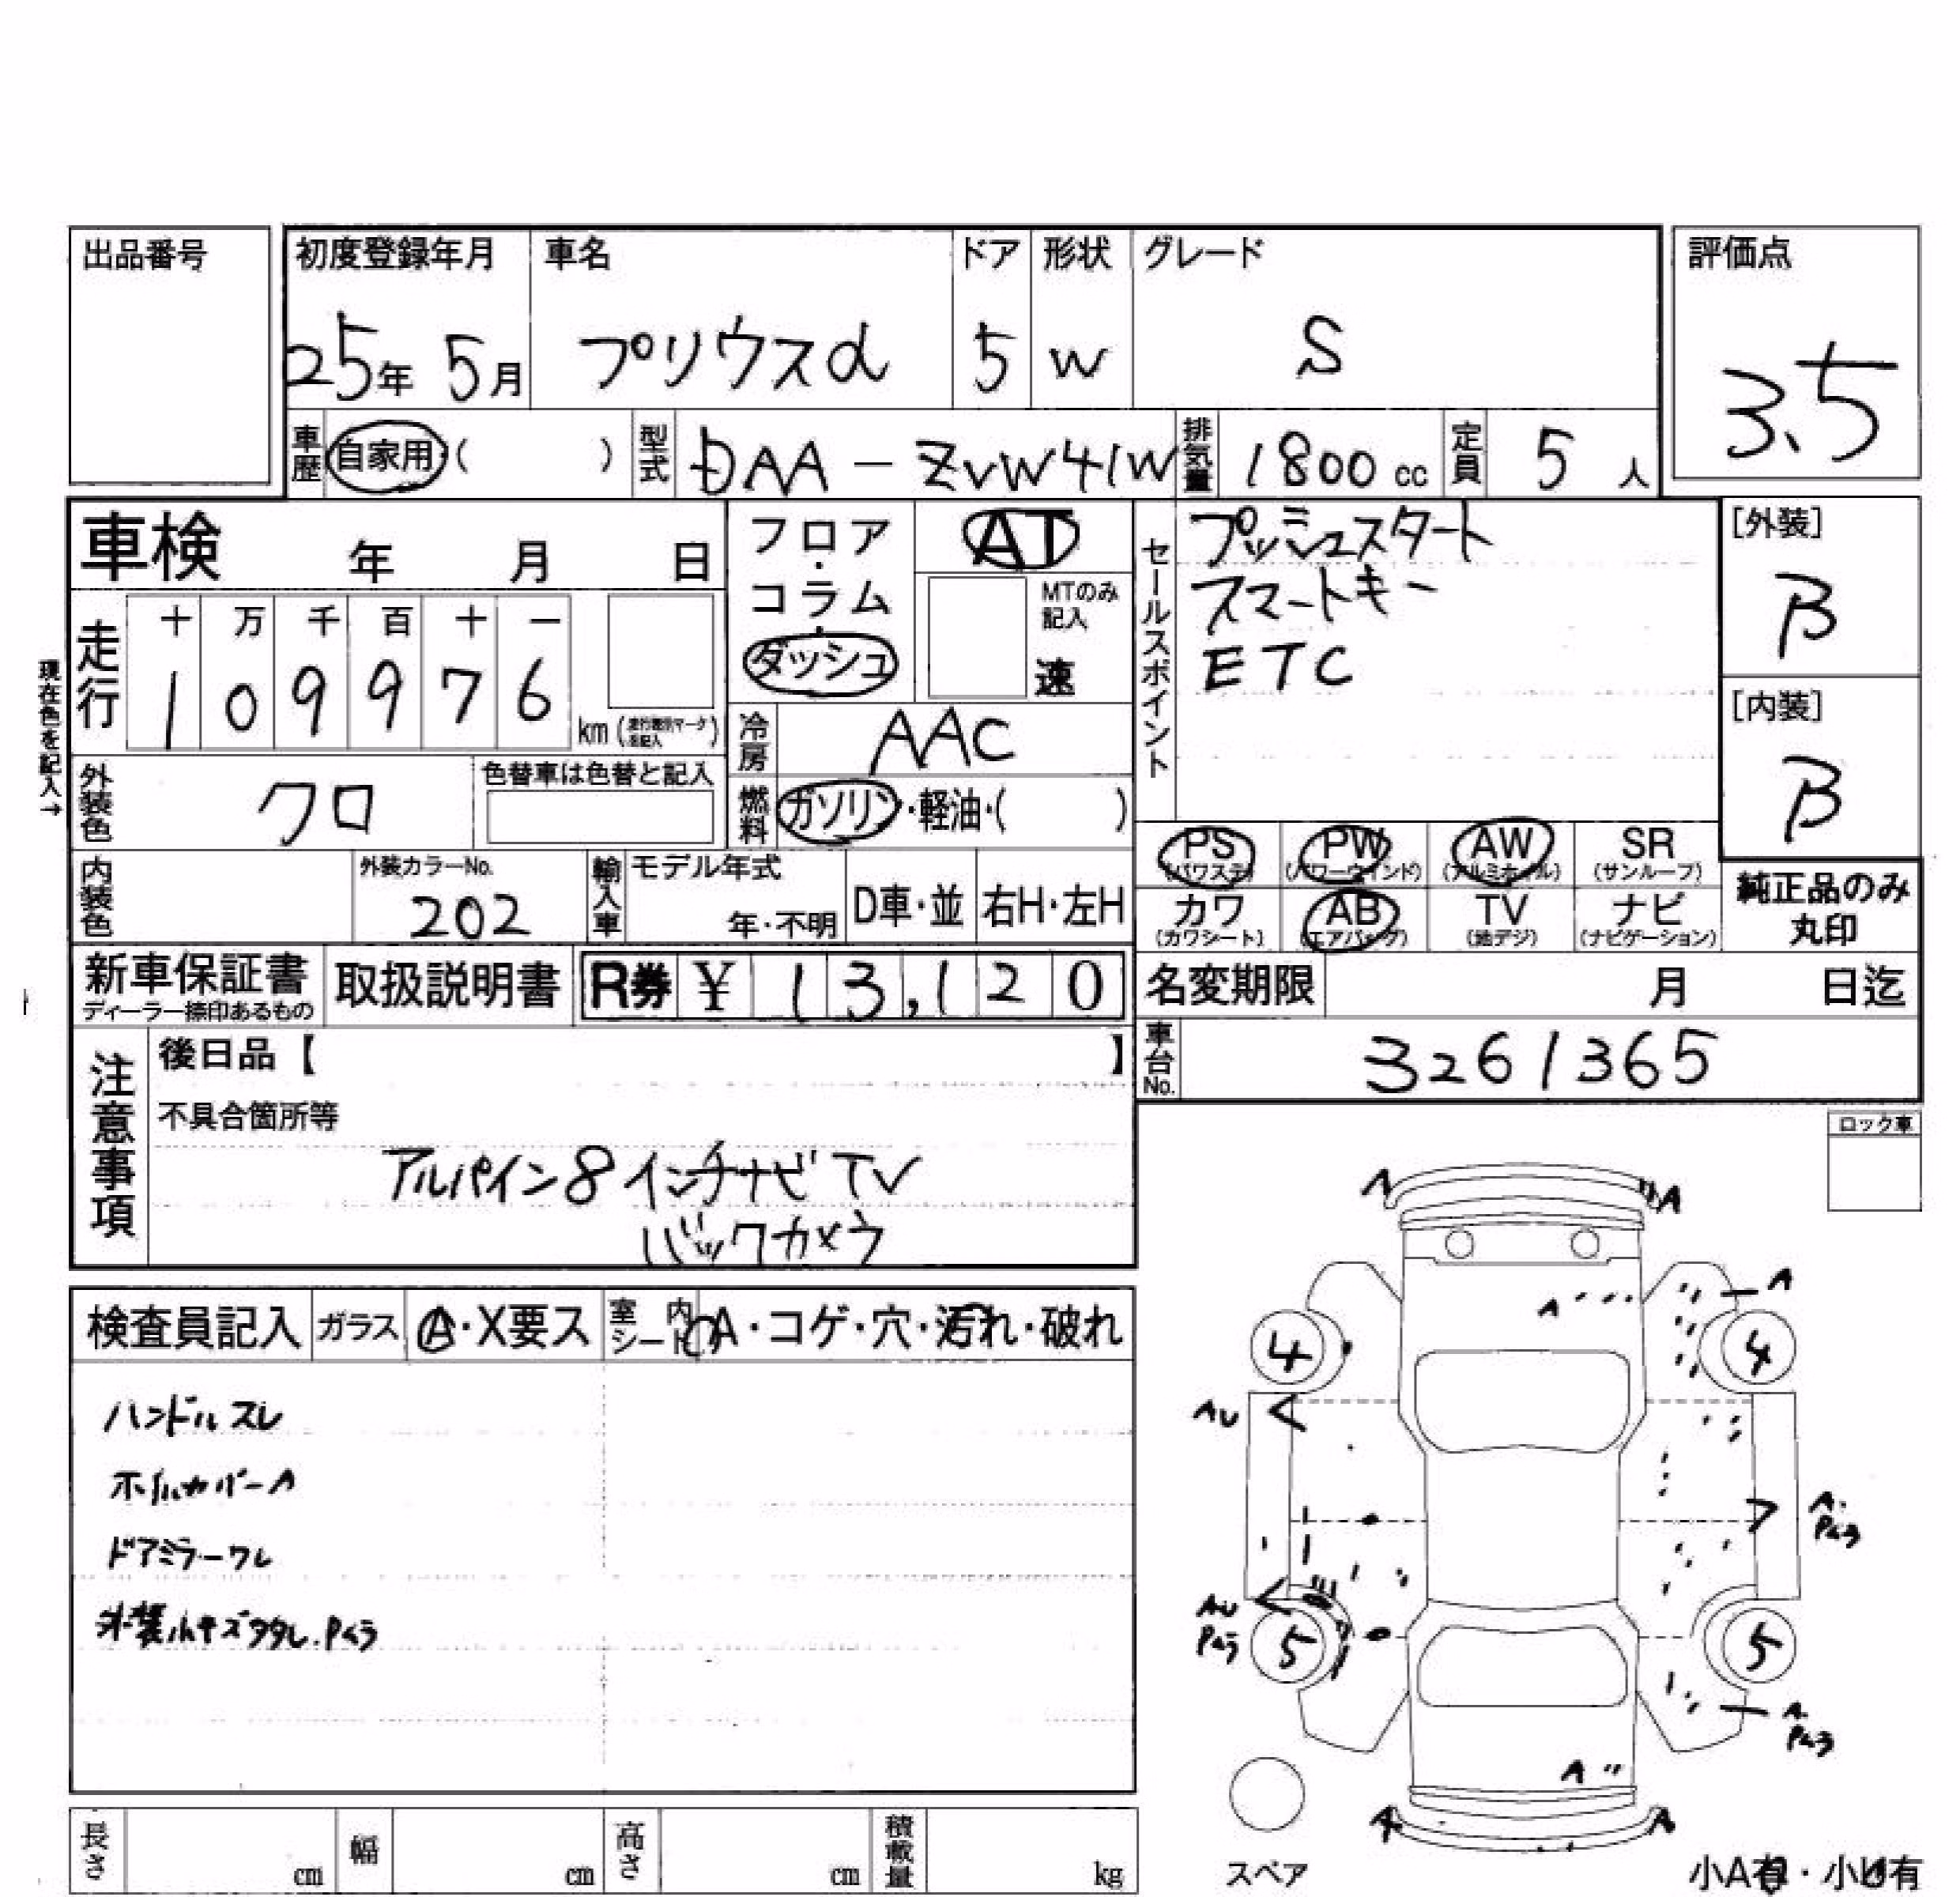 出品番号
初度登録年月 車名 ドア 形状 グレード 評価点
25年 5月 プリウスα 5 W S 3.5
車歴 自家用・( ) 型式 DAA－ZVW41W 排気量 1800 cc 定員 5 人
車検 年 月 日
フロア・コラム・ダッシュ AT
MTのみ記入 速
セールスポイント
プッシュスタート
スマートキー
ETC
[外装] B
[内装] B
走行 十 万 千 百 十 一
1 0 9 9 7 6 km
現在色を記入→
冷房 AAC
外装色 クロ 色替車は色替と記入
燃料 ガソリン・軽油・( )
PS (パワステ) PW (パワーウインド) AW (アルミホイル) SR (サンルーフ)
カワ (カワシート) AB (エアバッグ) TV (地デジ) ナビ (ナビゲーション)
純正品のみ丸印
内装色 外装カラーNo. 202 輸入車 モデル年式 年・不明 D車・並 右H・左H
新車保証書 ディーラー捺印あるもの 取扱説明書 R券 ¥ 13,120
名変期限 月 日迄
車台No. 3261365
注意事項
後日品【 】
不具合箇所等
アルパイン8インチナビTV
バックカメラ
ロック車
検査員記入 ガラス A・X要ス 室内シート A・コゲ・穴・汚れ・破れ
ハンドルスレ
ホイルカバーA
ドアミラーワレ
外装小キズ
A A
A A
4 4
AU
A
AU
5 5
A
A
A A
スペア
小A有・小U有
長さ cm 幅 cm 高さ cm 積載量 kg